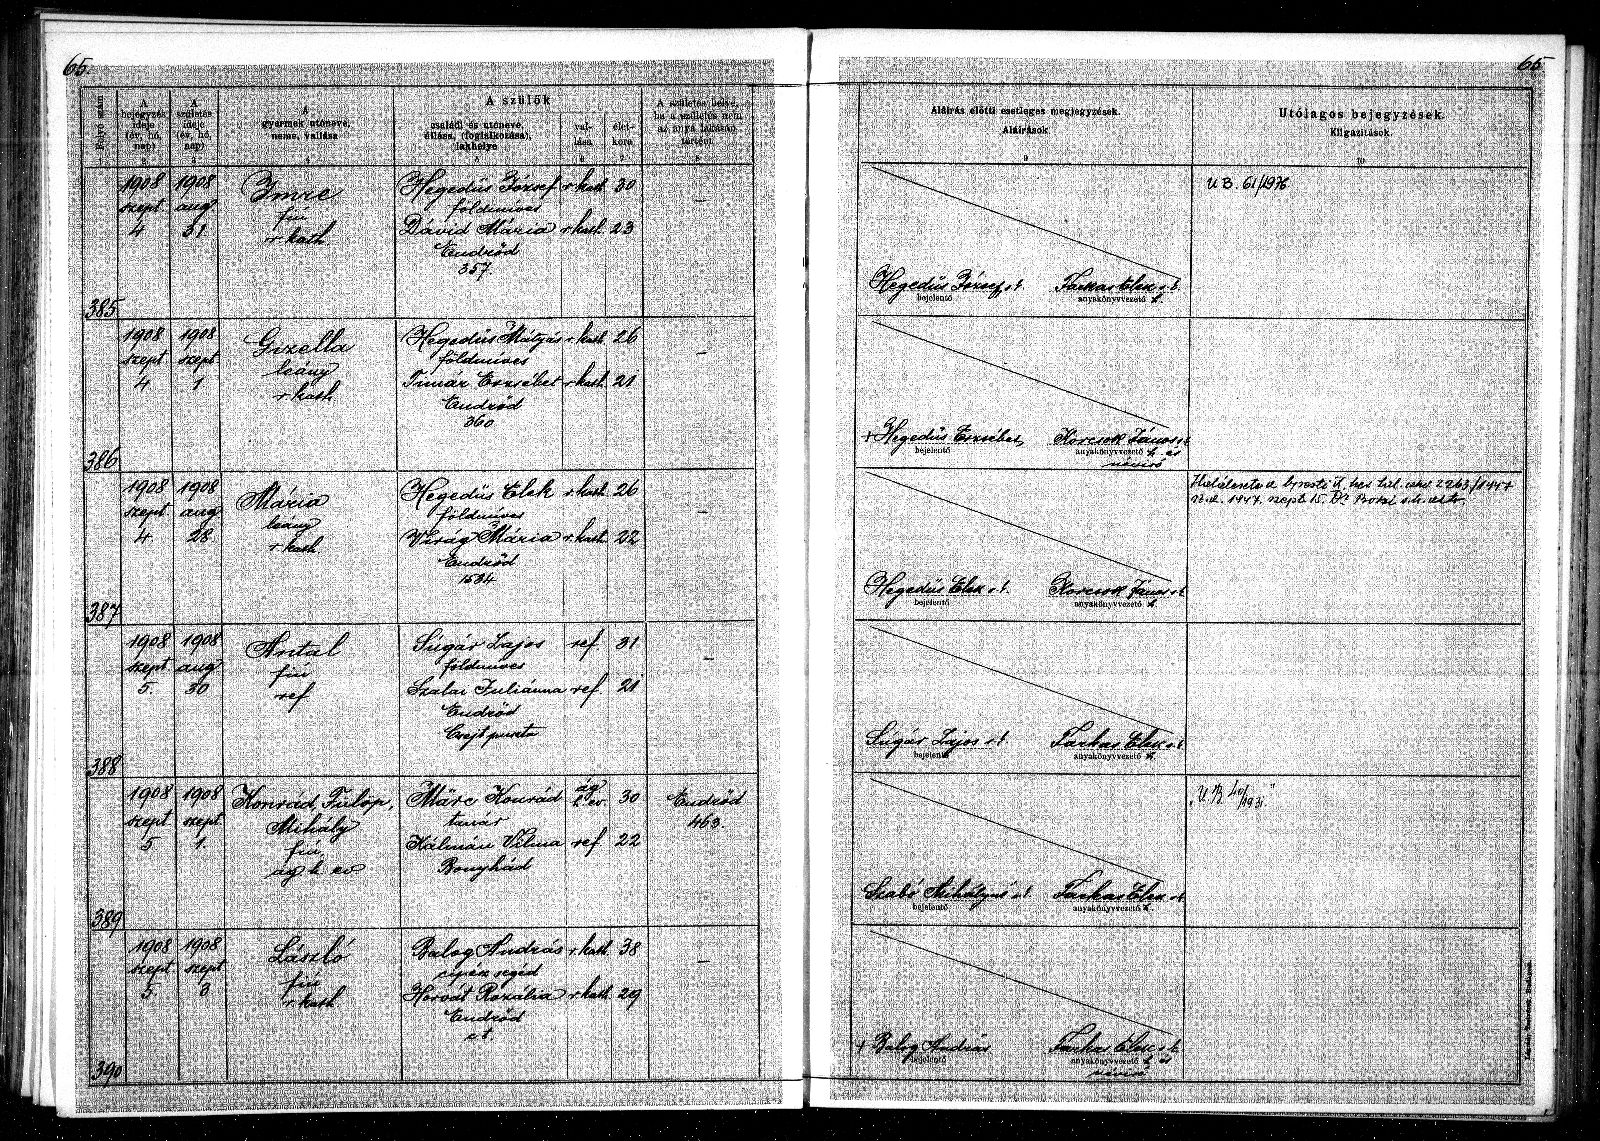 65.
65
Folyó szám
A bejegyzés ideje (év, hó, nap)
A születés ideje (év, hó, nap)
A gyermek utóneve, neme, vallása
A szülők
családi és utóneve, állása (foglalkozása), lakhelye
vallása
életkora
A születés helye, ha a születés nem az anya lakásán történt
Aláírás előtti esetleges megjegyzések.
Aláírások
Utólagos bejegyzések.
Kiigazítások.
2 3 4 5 6 7 8 9 10
385
1908 szept 4
1908 aug 31
Imre
fiú
r. kath
Hegedüs József r. kath. 30
földmives
Dávid Mária r. kath. 23
Endrőd
357.
—
Hegedüs József s. k.
bejelentő
Farkas Elek s. k.
anyakönyvvezető h.
U B. 61/1976
386
1908 szept 4
1908 szept 1
Gizella
leány
r. kath
Hegedüs Mátyás r. kath. 26
földmives
Timár Erzsébet r. kath. 21
Endrőd
360
—
+ Hegedüs Erzsébet
bejelentő
Korcsok János s. k.
anyakönyvvezető h. és
névíró
387
1908 szept 4
1908 aug 28
Mária
leány
r. kath
Hegedüs Elek r. kath. 26
földmives
Virág Mária r. kath. 22
Endrőd
1534
—
Hegedüs Elek s. k.
bejelentő
Korcsok János s. k.
anyakönyvvezető h.
388
1908 szept 5.
1908 aug 30
Antal
fiú
ref
Súgár Lajos ref 31
földmives
Szalai Juliánna ref. 21
Endrőd
Csejt puszta
—
Súgár Lajos s. k.
bejelentő
Farkas Elek s. k.
anyakönyvvezető h.
389
1908 szept 5
1908 szept. 1.
Konrád, Fülöp,
Mihály
fiú
ág h. ev
Märc Konrád ág h. ev. 30
tanár
Kálmán Vilma ref 22
Bonyhád
Endrőd
463.
Szabó Mihályné s. k.
bejelentő
Farkas Elek s. k.
anyakönyvvezető h.
"U. B. 40/1931"
390
1908 szept 5
1908 szept 3
László
fiú
r. kath
Balog András r. kath. 38
cipész segéd
Horvát Rozália r. kath. 29
Endrőd
—
+ Balog András
bejelentő
Farkas Elek s. k.
anyakönyvvezető h. és
névíró